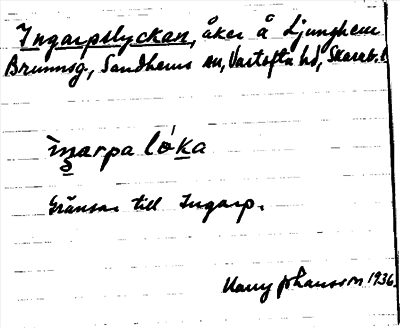 Ingarpslyckan, åker å Ljunghem
Brunnsg., Sandhems sn, Vartofta hd, Skarab. l.
ìn̠arpa lók̠a
Gränsar till Ingarp.
Harry Johansson 1936.